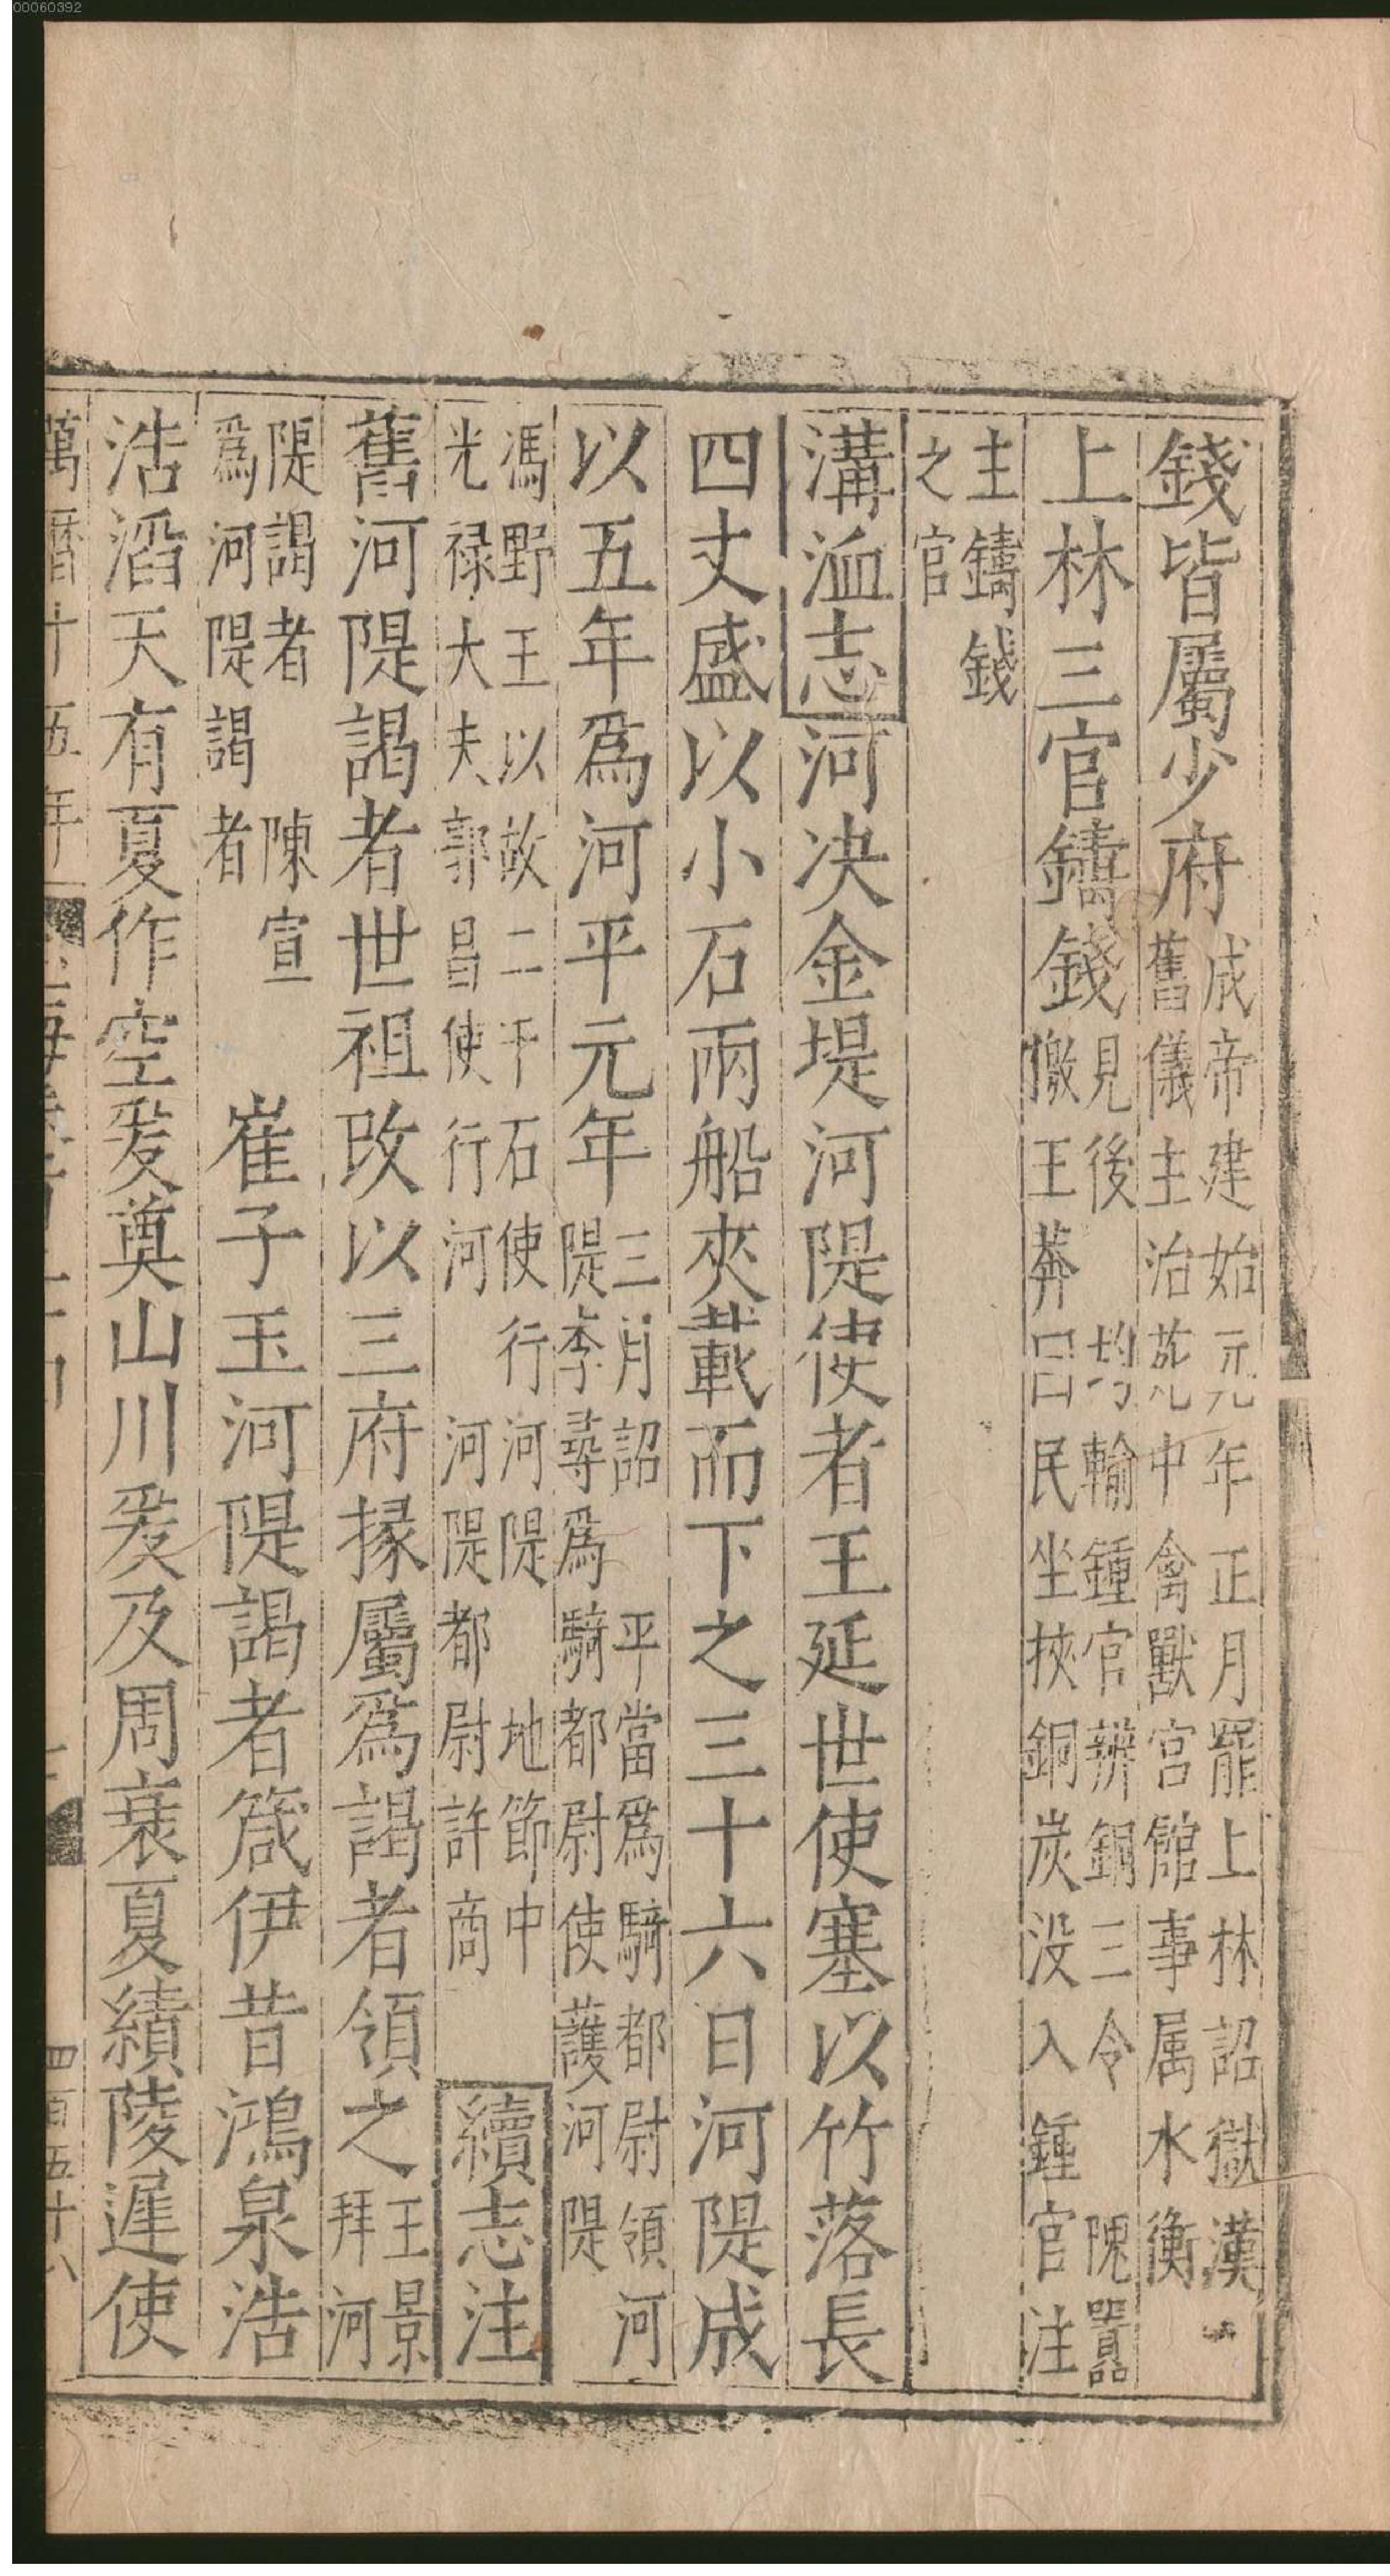 00060392
錢皆屬少府成帝建始元年正月罷上林詔獄漢舊儀主治苑中禽獸宮館事属水衡
上林三官鑄錢見後 均輸鍾官辨銅三令 隗囂檄王莽曰民坐挾銅炭没入鍾官注
主鑄錢之官
溝洫志河决金堤河隄使者王延世使塞以竹落長
四丈盛以小石兩船夾載而下之三十六日河隄成
以五年爲河平元年三月詔 平當爲騎都尉領河隄李尋爲騎都尉使護河隄
馮野王以故二千石使行河隄 地節中光禄大夫郭昌使行河 河隄都尉許商續志注
舊河隄謁者世祖改以三府掾屬爲謁者領之王景拜河
隄謁者 陳宣爲河隄謁者 崔子玉河隄謁者箴伊昔鴻泉浩
浩滔天有夏作空爰奠山川爰及周衰夏績陵遲使
萬曆十五年
四百五十八